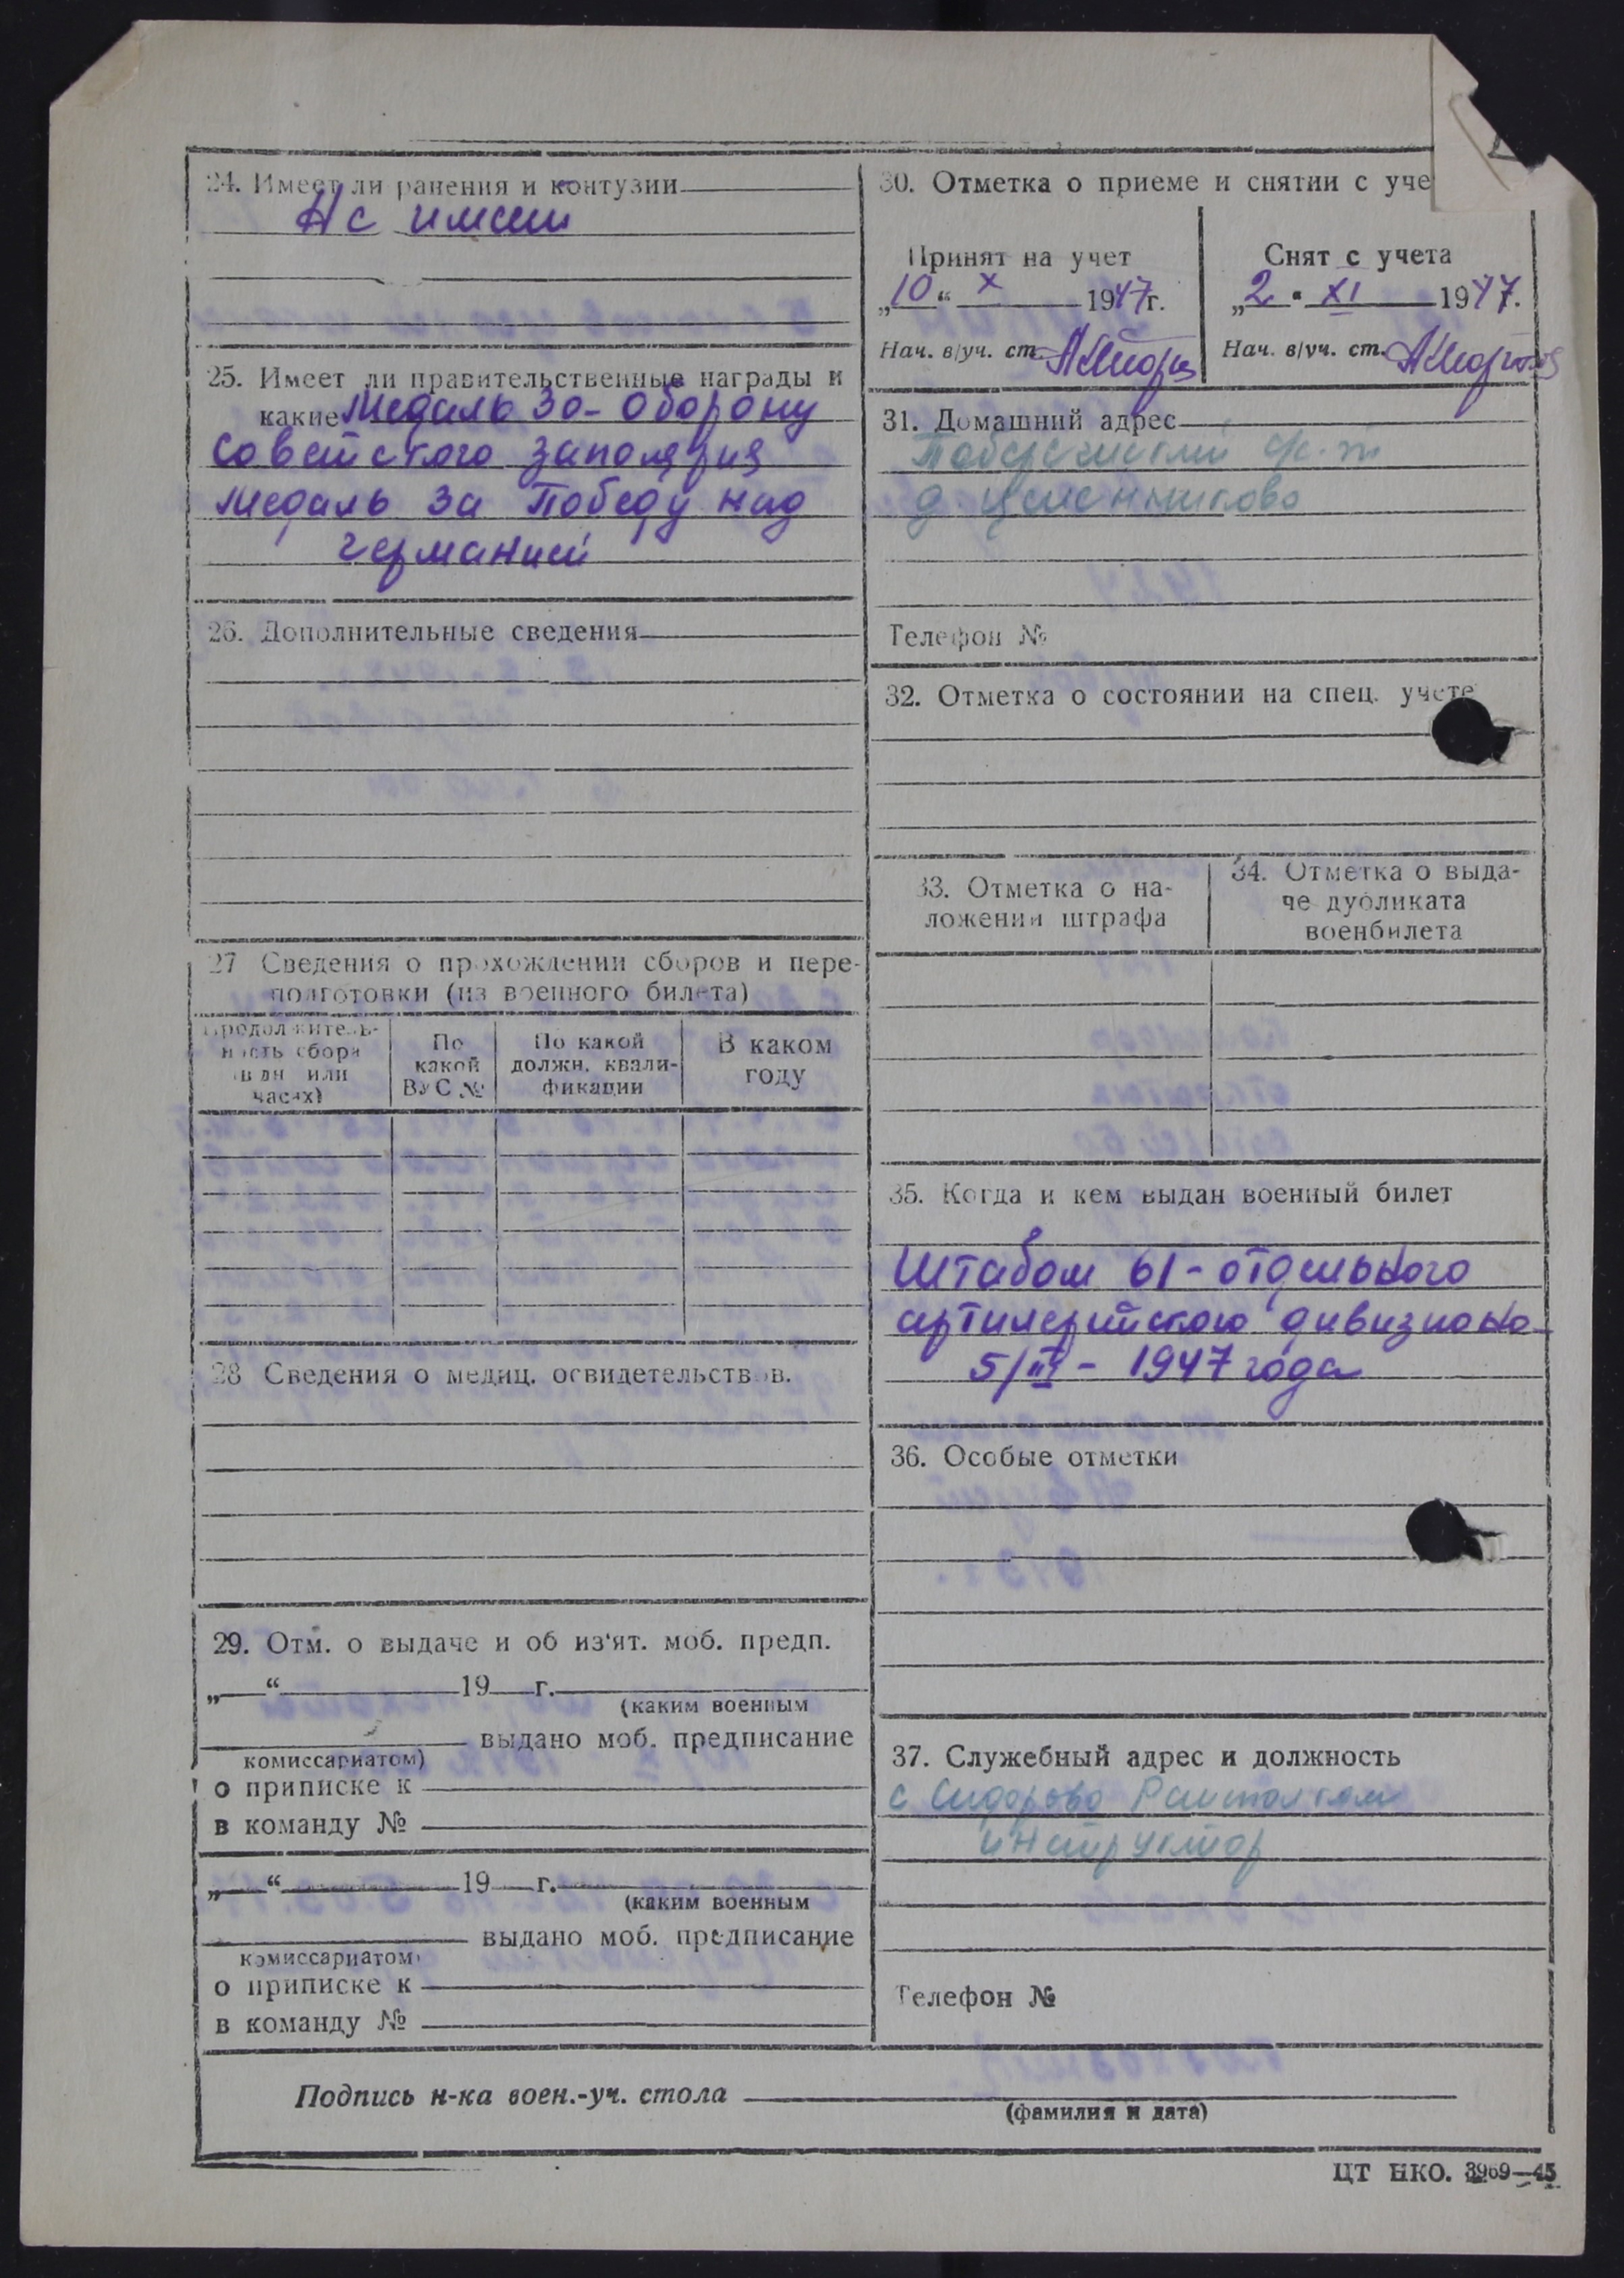 24. Имеет ли ранения и контузии
Не имеит
25. Имеет ли правительственные награды и
какие Медаль За-оборону
Советского заполярия
медаль за Победу над
германией
26. Дополнительные сведения
27 Сведения о прохождении сборов и пере-
подготовки (из военного билета)
Продолжитель-
ность сбора
(в дн или
часах)
По
какой
ВУС №
По какой
должн. квали-
фикации
В каком
году
28 Сведения о медиц. освидетельствов.
29. Отм. о выдаче и об из'ят. моб. предп.
„ “ 19 г.
(каким военным
выдано моб. предписание
комиссариатом)
о приписке к
в команду №
„ “ 19 г.
(каким военным
выдано моб. предписание
комиссариатом)
о приписке к
в команду №
30. Отметка о приеме и снятии с уче
Принят на учет
„10“ X 1947г.
Нач. в/уч. ст.
Снят с учета
„2“ XI 1947.
Нач. в/уч. ст.
31. Домашний адрес
д.
Телефон №
32. Отметка о состоянии на спец. учете
33. Отметка о на-
ложении штрафа
34. Отметка о выда-
че дубликата
военбилета
35. Когда и кем выдан военный билет
Штабом 61-отдельного
артилерийского дивизиона
5/III - 1947 года
36. Особые отметки
37. Служебный адрес и должность
с Сидорово
инструктор
Телефон №
Подпись н-ка воен.-уч. стола
(фамилия и дата)
ЦТ НКО. 3969—45